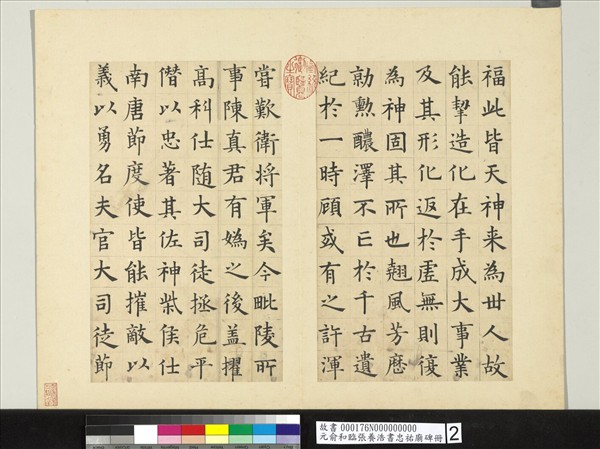 福此皆天神来為世人故
能挈造化在手成大事業
及其形化返於虛無則復
為神固其所也翹風芳塵
勍勲醲澤不亡於千古遺
紀於一時顧或有之許渾
嘗歎衛将軍矣今毗陵所
事陳真君有媯之後蓋擢
髙科仕随大司徒拯危平
僭以忠著其佐神柴侯仕
南唐節度使皆能摧敵以
義以勇名夫官大司徒節
故書 000176N000000000
元俞和臨張養浩書忠祐廟碑冊
2